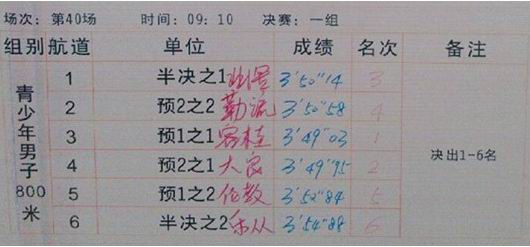 场次：第40场 时间：09：10 决赛：一组
组别 航道 单位 成绩 名次 备注
青少年男子800米
1 半决之1 3'50"14 3
2 预2之2 勒流 3'50"58 4
3 预1之1 容桂 3'49"03 1
4 预2之1 大良 3'49"95 2
5 预1之2 伦教 3'52"84 5
6 半决之2 乐从 3'54"88 6
决出1-6名